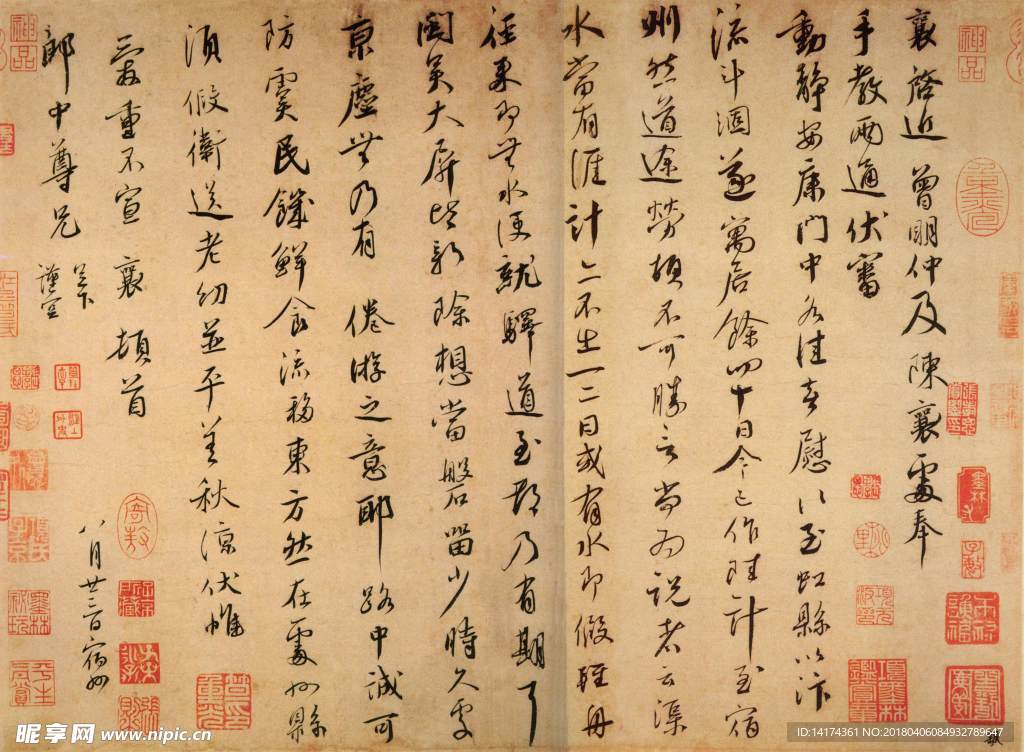 襄啓近 曾明仲及陳襄處奉
手教兩通伏審
動靜安康門中各佳喜慰以至虹縣以汴
流斗涸遂寓居餘四十日今已作陸計至宿
州然道途勞頓不可勝言尚為說者云渠
水當有涯計亦不出一二日或有水即假輕舟
徑來即無水便就驛道至都乃有期耳
閩吳大屏皆新除想當磐留少時久處
京塵無乃有 倦游之意耶 路中誠可
防虞民饑鮮食流移東方然在處州縣
須假衛送老幼並平善秋涼伏惟
君重不宣 襄頓首
郎中尊兄 足下
謹空
八月廿三日宿州
昵享网 www.nipic.cn
ID:14174361 NO:20180406084932789647